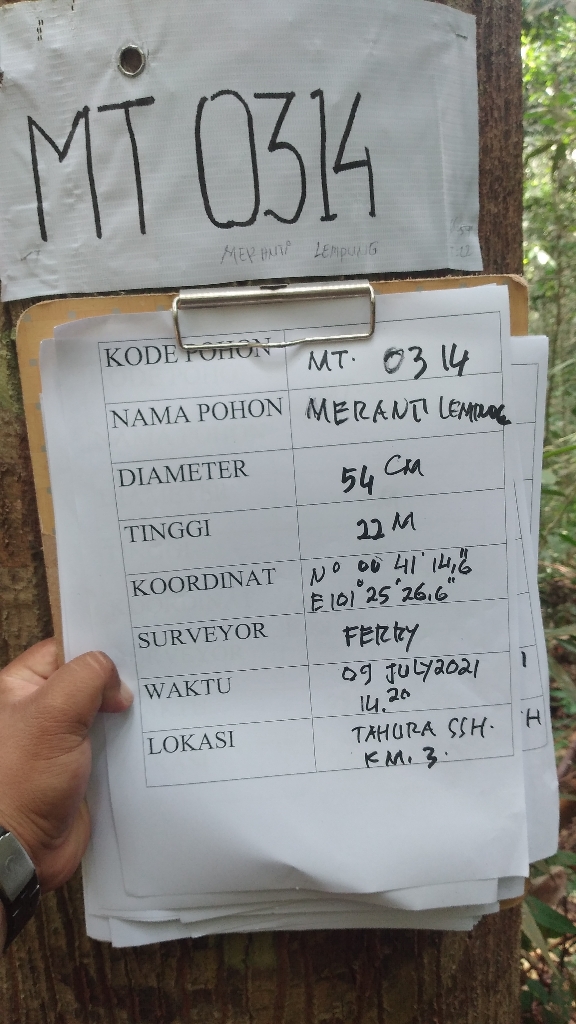 MT 0314
MERANTI LEMPUNG
KODE POHON MT. 0314
NAMA POHON MERANTI LEMPUNG
DIAMETER 54 CM
TINGGI 22 M
KOORDINAT N° 00 41' 14,6"
E 101° 25' 26,6"
SURVEYOR FERRY
WAKTU 09 JULY 2021
14.20
LOKASI TAHURA SSH.
KM. 3.
H